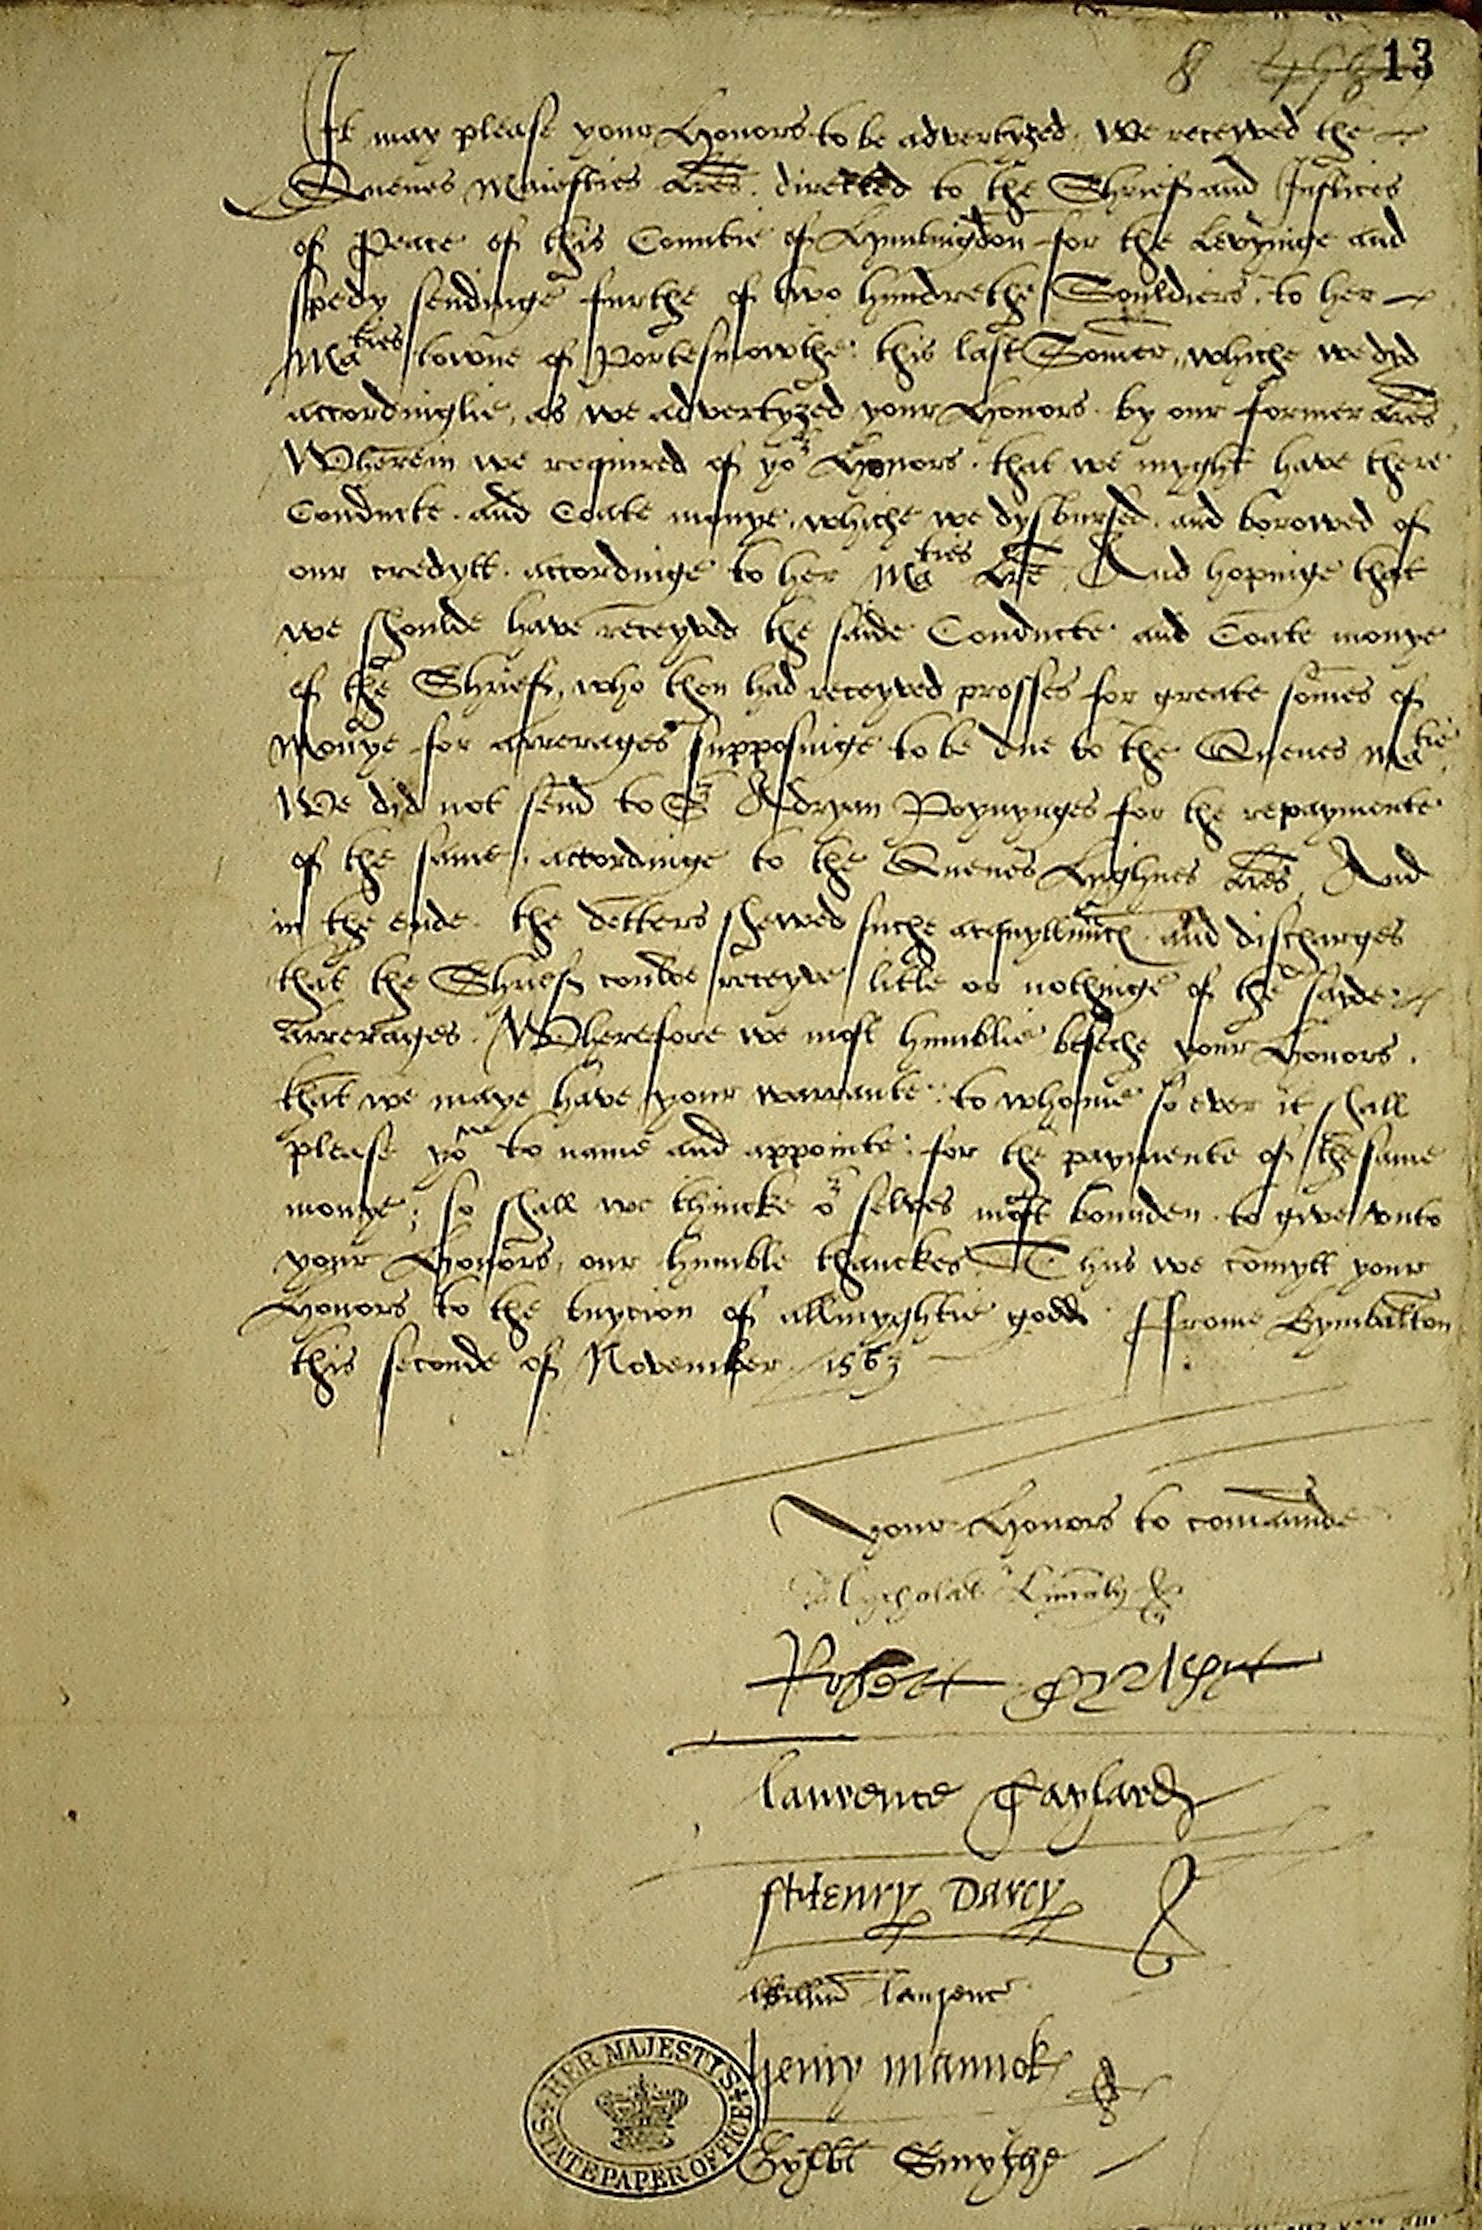 8 13
It may please your Honors to be advertyzed. We receyved the
Quenes Maiesties Lres. directed to the Shrief and Justices
of Peace of this Countie of Hyntingdon for the Levyinge and
spedy sendinge furthe of two hundrethe Souldiers. to her
Maties towne of Portesmowthe: this last Somer, whiche we dyd
accordinglie, as we advertyzed your Honors. by our former Lres,
Wherein we required of yor Honors. that we myght have there
Conducte. and Coate monye, whiche we dysbursed. and borowed of
our credytt. accordinge to her Maties Lre. And hopinge that
we shoulde have receyved the saide Conducte and Coate monye
of the Shrief, who then had receyved prosses for greate somes of
Monye for arrerages supposinge to be due to the Quenes Matie.
We did not send to Sr Adryan Poynynges for the repaymente
of the same, accordinge to the Quenes Hyghnes Lres, And
in the ende. the detters shewed suche and discharges
that the Shrief coulde receyve litle or nothinge of the sayde
arrerages. Wherefore we most humblie beseche your Honors.
that we maye have your warrante: to whome so ever it shall
please yow to name and appointe: for the paymente of the same
monye; so shall we thincke or selves most bounden to give unto
your Honors, our humble thanckes Thus we comytt your
Honors to the tuycion of allmyghtie godd. Ffrome Kymbalton
this seconde of November 1563
your Honors to comaunde
Nycholas
Robert
Laurence Taylard
Henry Darcy
Willm Laurence
henry mannok
Gylbt Smythe
HER MAJESTYS
STATE PAPER OFFICE